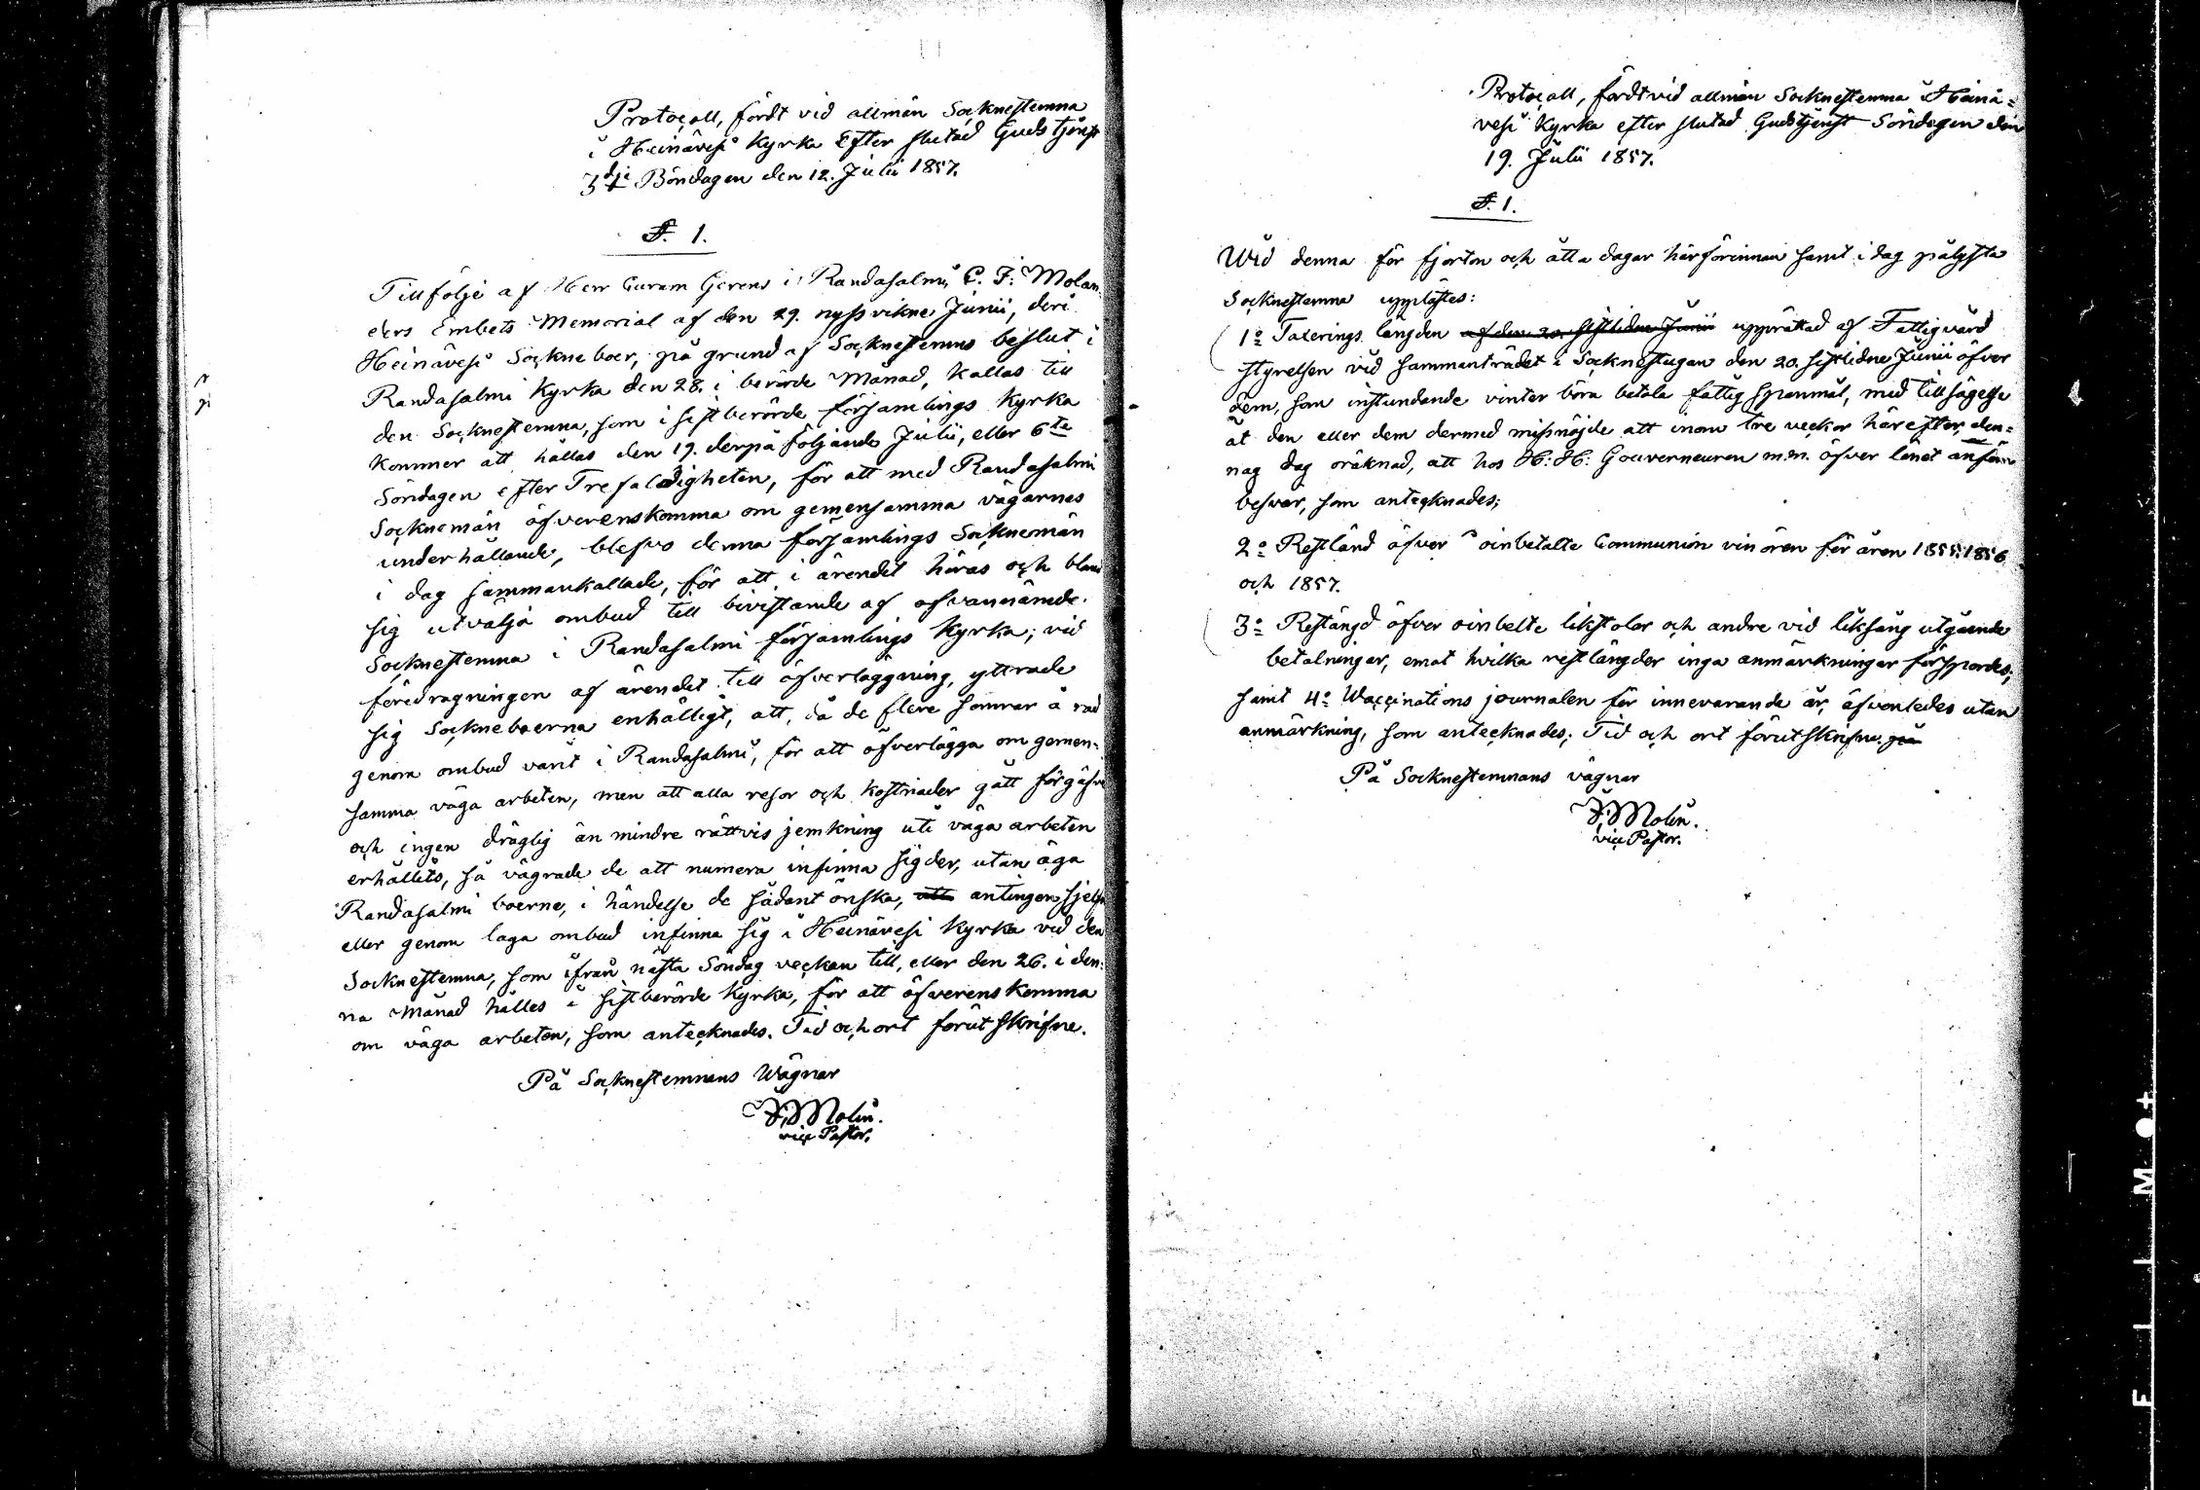 Protocoll, fördt vid allmän Sockneſtemma
i Heinäveſi Kyrka Efter ſlutad Gudstjenſt
3dje Böndagen den 12. Julii 1857.
§. 1.
Till följe af Herr Curam Gerens i Randaſalmi, C. F. Molan-
ders Embets Memorial af den 29. nyſsvikne Junii, deri
Heinäveſi Sockneboer, på grund af Sockneſtemmo beſlut i
Randaſalmi Kyrka den 28. i berörde Månad, kallas till
den Sockneſtemma, ſom i ſiſtberörde förſamlings Kyrka
kommer att hållas den 19. derpå följande Julii, eller 6te
Söndagen efter Trefaldigheten, för att med Randaſalmi
Socknemän öfverenskomma om gemenſamma vägarnes
underhållande, blefvo denna förſamlings Socknemän
i dag ſammankallade, för att i ärendet höras och bland
ſig utvälja ombud till biviſtande af ofvannämde
Sockneſtemma i Randaſalmi förſamlings Kyrka; vid
föredragningen af ärendet till öfverläggning, yttrade
ſig Sockneboerna enhälligt, att, då de flere ſomrar å rad
genom ombud varit i Randaſalmi, för att öfverlägga om gemen-
ſamma väga arbeten, men att alla reſor och koſtnader gått förgäfves
och ingen dräglig än mindre rättvis jemkning uti väga arbeten
erhållits, ſå vägrade de att numera infinna ſig der, utan äga
Randaſalmi boerne, i händelſe de ſådant önſka, att antingen ſjelfve
eller genom laga ombud infinna ſig i Heinäveſi Kyrka vid den
Sockneſtemma, ſom ifrån näſta Söndag veckan till, eller den 26. i den-
na Månad hålles i ſiſtberörde Kyrka, för att öfverenskomma
om väga arbeten, ſom antecknades. Tid och ort förutſkrifne.
På Sockneſtemmans Wägnar
J. Molin.
vice Paſtor.
Protocoll, fördt vid allmän Sockneſtemma i Heinä-
veſi Kyrka efter ſlutad Gudstjenſt Söndagen den
19. Julii 1857.
§. 1.
Wid denna för fjorton och åtta dagar härförinnan ſamt i dag pålyſta
Sockneſtemma upplästes:
1o Taxerings längden af den 20. ſiſtliden Junii upprättad af Fattigvård
ſtyrelſen vid ſammanträdet i Sockneſtugan den 20. ſiſtlidne Junii öfver
dem, ſom inſtundande vinter böra betala fattig ſpanmål, med tillſägelſe
åt den eller dem dermed miſsnöjde att inom tre veckor härefter, den-
nag dag oräknad, att hos H: H: Gouverneuren m.m. öfver länet anföra
beſvär, ſom antecknades;
2o Reſtländ öfver oinbetalte Communion vin ören för åren 1855. 1856
och 1857.
3o Reſtängd öfver oinbelte likſtolar och andre vid likſång utgående
betalningar, emot hvilka reſtlängder inga anmärkningar förſpordes;
ſamt 4o Waccinations journalen för innevarande år, äfvenledes utan
anmärkning, ſom antecknades; Tid och ort förutſkrifne. på
På Sockneſtemmans vägnar
J. Molin.
vice Paſtor.
FILM